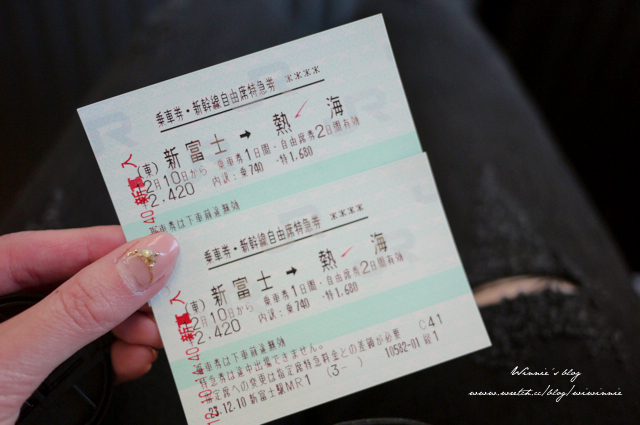 乗車券・新幹線自由席特急券 ****
(東) 新富士 → 熱海
2月10日から 乗車券1日間・自由席券2日間有効
2.420 内訳:乗740・特1.680
乗車券は下車前途無効
乗車券・新幹線自由席特急券 ****
(東) 新富士 → 熱海
2月10日から 乗車券1日間・自由席券2日間有効
2.420 内訳:乗740・特1.680
乗車券は下車前途無効
特急券は途中出場できません。
指定席への変更は指定席特急料金との差額が必要
23.12.10 新富士駅MR1 (3- ) 10532-01 C41
Winnie's blog
www.wretch.cc/blog/wiwinnie